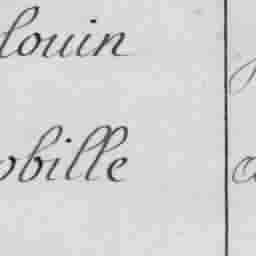 louin
obille